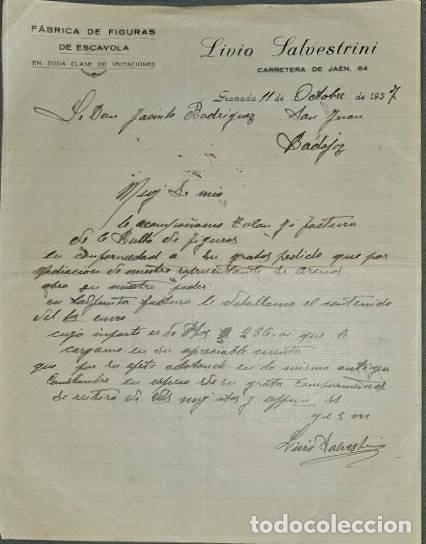 FÁBRICA DE FIGURAS
DE ESCAYOLA
EN TODA CLASE DE IMITACIONES
Livio Salvestrini
CARRETERA DE JAÉN, 64
Granada 11 de Octobre de 1937
S. Don Jacinto Rodriguez San Juan
Badajoz
Muy S. mio
le acompañamos talon y factura
de 6 Bultos de figuras
en conformedad a su grato pedido que por
mediacion de nuestro representante Sr arenas
obra en nuestro poder
en la adjunta factura le detallamos el contenido
del
cuyo importe es de 236 que le
cargamo en su apreciable cuenta
que por su efeto
en espera de su grata conformidad
se reitera de Vds muy atos y
q e s m
Livio Salvestrini
todocoleccion